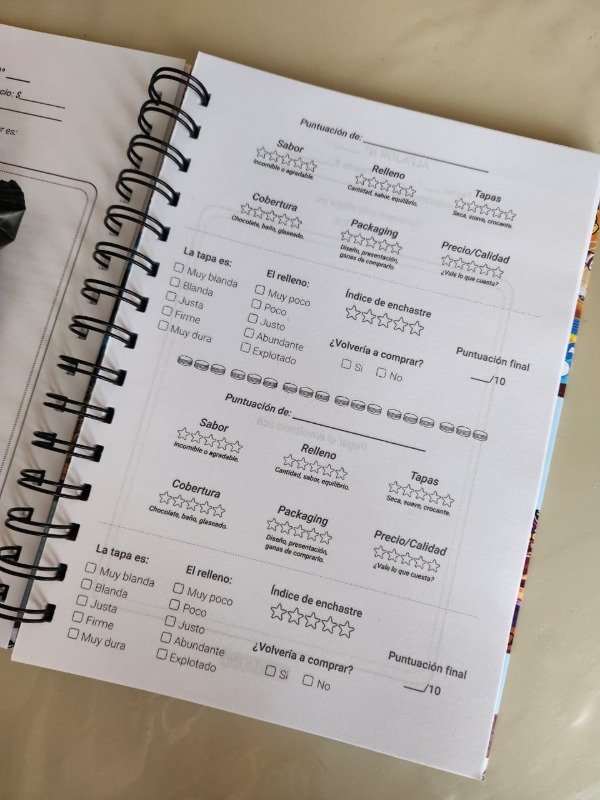 cio: $
r es:
Puntuación de:
Sabor
Incomible o agradable.
Relleno
Cantidad, sabor, equilibrio.
Tapas
Seca, suave, crocante.
Cobertura
Chocolate, baño, glaseado.
Packaging
Diseño, presentación,
ganas de comprarlo.
Precio/Calidad
¿Vale lo que cuesta?
La tapa es:
Muy blanda
Blanda
Justa
Firme
Muy dura
El relleno:
Muy poco
Poco
Justo
Abundante
Explotado
Índice de enchastre
¿Volvería a comprar?
Si No
Puntuación final
/10
Puntuación de:
Sabor
Incomible o agradable.
Relleno
Cantidad, sabor, equilibrio.
Tapas
Seca, suave, crocante.
Cobertura
Chocolate, baño, glaseado.
Packaging
Diseño, presentación,
ganas de comprarlo.
Precio/Calidad
¿Vale lo que cuesta?
La tapa es:
Muy blanda
Blanda
Justa
Firme
Muy dura
El relleno:
Muy poco
Poco
Justo
Abundante
Explotado
Índice de enchastre
¿Volvería a comprar?
Si No
Puntuación final
/10